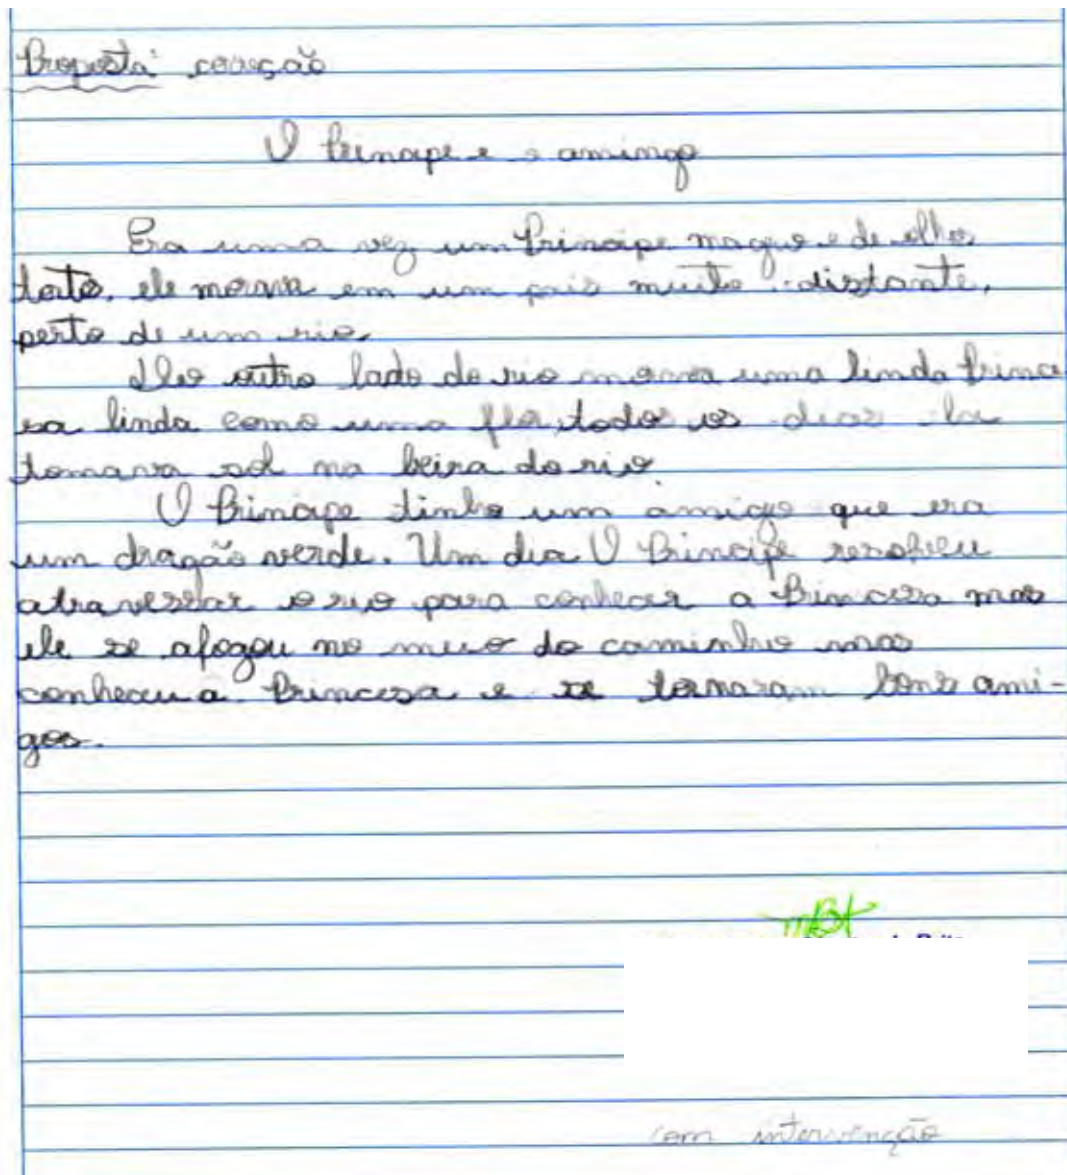 Proposta correção
O Principe e o amingo
Era uma vez um Principe magro e de olho
torto, ele morava em um pais muito distante,
perto de um rio.
Do outro lado do rio morava uma linda Prince
sa linda como uma flor, todos os dias ela
tomava sol na beira do rio.
O Principe tinha um amigo que era
um dragão verde. Um dia O Principe resolveu
atravessar o rio para conhecer a Princesa mas
ele se afogou no meio do caminho mas
conheceu a Princesa e se tornaram bons ami-
gos.
com intervenção